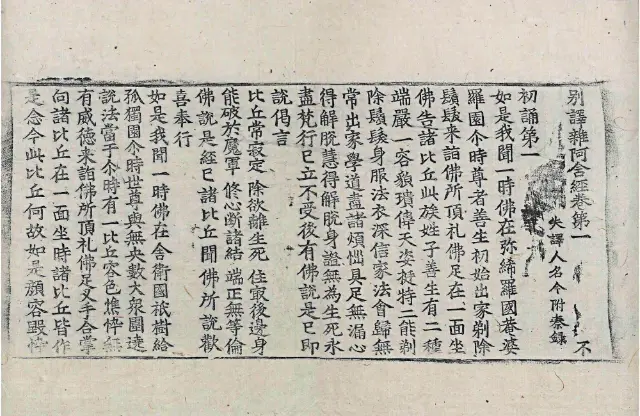 別譯雜阿含經卷第一 不
失譯人名今附秦録
初誦第一
如是我聞一時佛在弥絺羅國菴婆
羅園尒時尊者善生初始出家剃除
鬚髮来詣佛所頂礼佛足在一面坐
佛告諸比丘此族姓子善生有二種
端嚴一容貌瓌偉天姿挺特二能剃
除鬚髮身服法衣深信家法會歸無
常出家學道盡諸煩惱具足無漏心
得解脫慧得解脫身證無為生死永
盡梵行已立不受後有佛說是已即
說偈言
比丘常寂定 除欲離生死 住寂後邊身
能破於魔軍 修心斷諸結 端正無等倫
佛說是經已諸比丘聞佛所說歡
喜奉行
如是我聞一時佛在舍衛國祇樹給
孤獨園尒時世尊與無央數大衆圍遶
說法當于尒時有一比丘容色憔悴無
有威德来詣佛所頂礼佛足叉手合掌
向諸比丘在一面坐時諸比丘皆作
是念今此比丘何故如是顏容毀悴